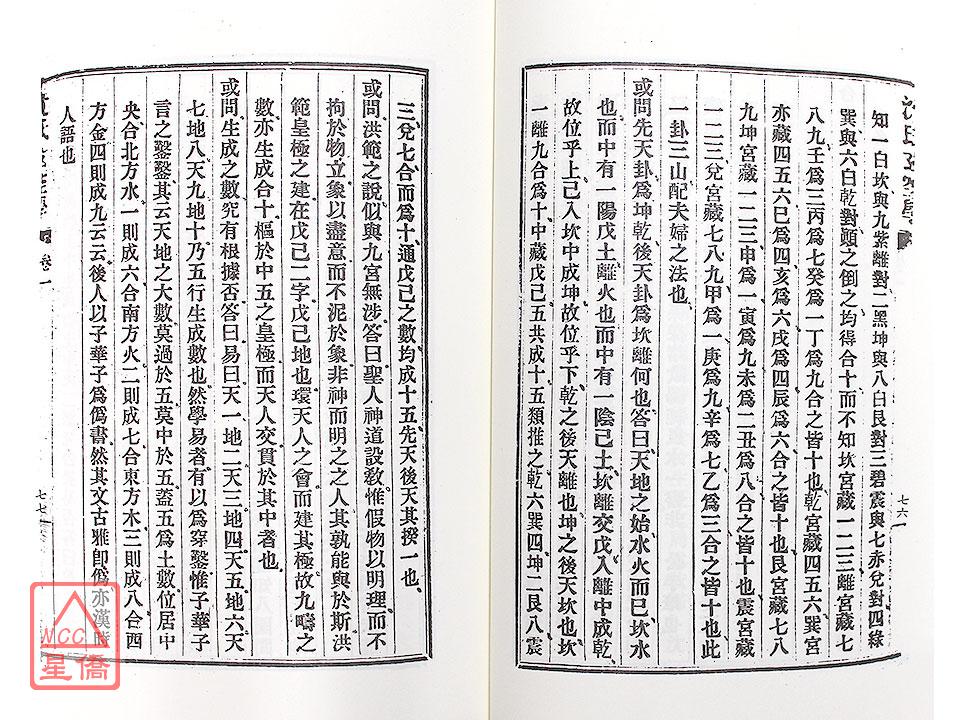 知一白坎與九紫離對、二黑坤與八白艮對、三碧震與七赤兌對、四綠
巽與六白乾對、顚之倒之、均得合十、而不知坎宮藏一二三、離宮藏七
八九、壬爲三、丙爲七、癸爲一、丁爲九、合之皆十也、乾宮藏四五六、巽宮
亦藏四五六、巳爲四、亥爲六、戌爲四、辰爲六、合之皆十也、艮宮藏七八
九、坤宮藏一二三、申爲一、寅爲九、未爲二、丑爲八、合之皆十也、震宮藏
一二三、兌宮藏七八九、甲爲一、庚爲九、辛爲七、乙爲三、合之皆十也、此
一卦三山、配夫婦之法也、
或問先天卦爲坤乾、後天卦爲坎離、何也、答曰、天地之始、水火而已、坎水
也、而中有一陽戊土、離火也、而中有一陰己土、坎離交戊、入離中成乾、
故位乎上、己入坎中成坤、故位乎下、乾之後天離也、坤之後天坎也、坎
一離九合爲十、中藏戊己五共成十五、類推之、乾六巽四、坤二艮八、震
七六
三兌七、合而爲十、通戊己之數、均成十五、先天後天、其揆一也、
或問洪範之說、似與九宮無涉、答曰、聖人神道設敎、惟假物以明理、而不
拘於物、立象以盡意、而不泥於象、非神而明之之人、其孰能與於斯、洪
範皇極之建、在戊己二字、戊己地也、環天人之會而建其極、故九疇之
數、亦生成合十、樞於中五之皇極、而天人交貫於其中者也、
或問生成之數、究有根據否、答曰、易曰、天一地二天三地四天五地六天
七地八天九地十、乃五行生成數也、然學易者有以爲穿鑿、惟子華子
言之鑿鑿、其云天地之大數、莫過於五、莫中於五、蓋五爲土數、位居中
央、合北方水一則成六、合南方火二則成七、合東方木三則成八、合西
方金四則成九云云、後人以子華子爲僞書、然其文古雅、卽僞亦漢時
人語也、
卷一
七七
WCC
星僑